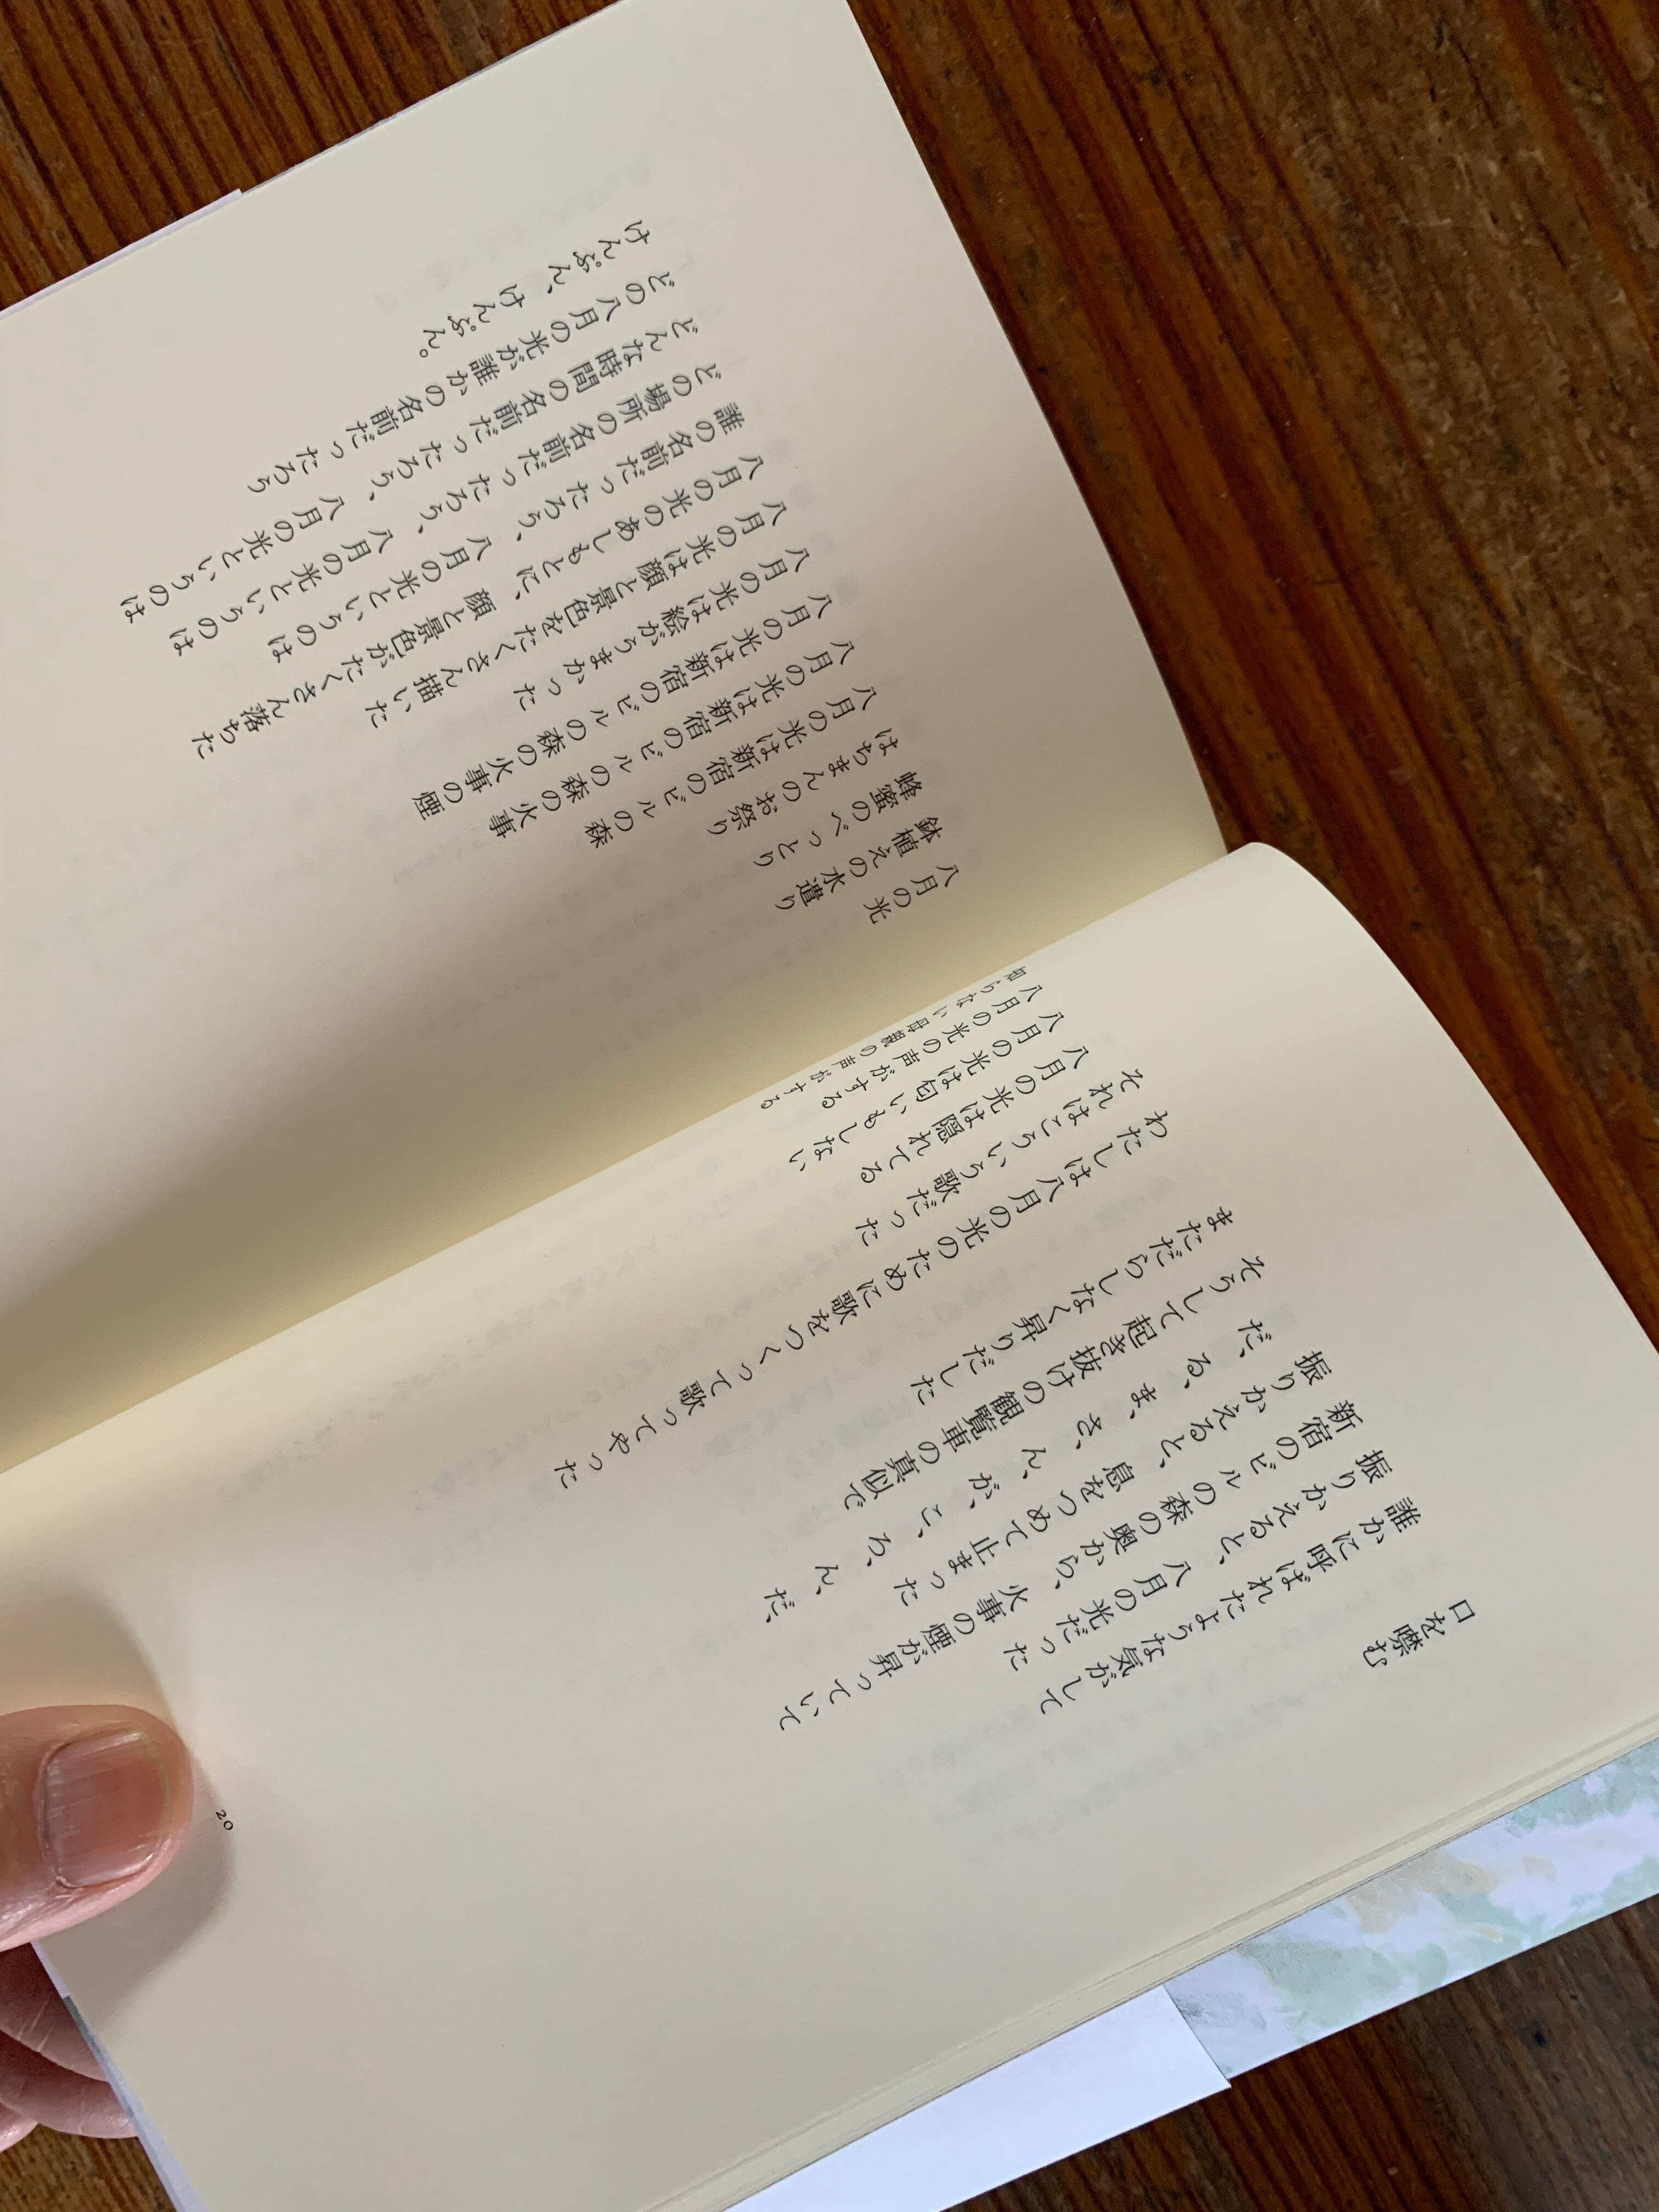 口を噤む
誰かに呼ばれたような気がして
振りかえると、八月の光だった
新宿のビルの森の奥から、火事の煙が昇っていて
振りかえると、息をつめて止まった
だ、る、ま、さ、ん、が、こ、ろ、ん、だ、
そうして起き抜けの観覧車の真似で
まただらしなく昇りだした
わたしは八月の光のために歌をつくって歌ってやった
それはこういう歌だった
八月の光は隠れてる
八月の光は匂いもしない
八月の光の声がする
知らない母親の声がする
20
八月の光
鉢植えの水遣り
蜂蜜のべっとり
はちまんのお祭り
八月の光は新宿のビルの森
八月の光は新宿のビルの森の火事
八月の光は新宿のビルの森の火事の煙
八月の光は絵がうまかった
八月の光は顔と景色をたくさん描いた
八月の光のあしもとに、顔と景色がたくさん落ちた
誰の名前だったろう、八月の光というのは
どの場所の名前だったろう、八月の光というのは
どんな時間の名前だったろう、八月の光というのは
どの八月の光が誰かの名前だったろう
けんぷん、けんぷん。